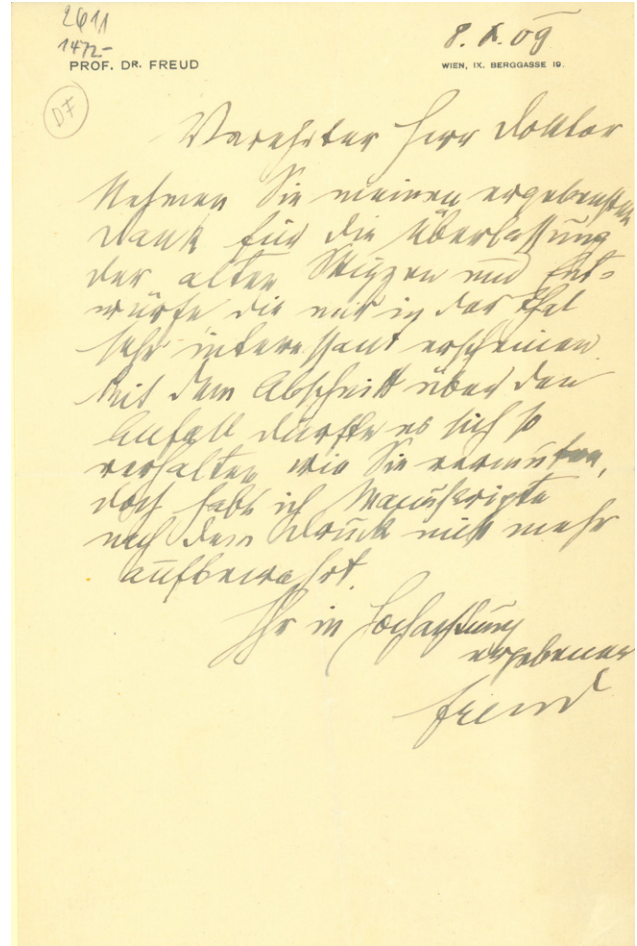 2611
1472-
8. X. 09
PROF. DR. FREUD
WIEN, IX. BERGGASSE 19.
DF
Verehrter Herr Doktor
Nehmen Sie meinen ergebensten
Dank für die Überlassung
der alten Skizzen und Ent-
würfe die mir in der That
sehr interessant erscheinen.
Mit dem Abschnitt über den
Anfall dürfte es sich so
verhalten wie Sie vermuten,
doch habe ich Manuskripte
nach dem Druck nicht mehr
aufbewahrt.
Ihr in Hochachtung
ergebener
Freud